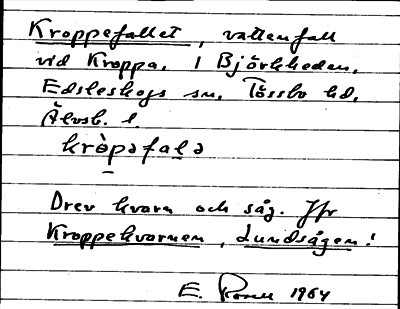 Kroppefallet, vattenfall
vid Kroppa, i Björkheden,
Edsleskogs sn, Tössbo hd,
Älvsb. l.
kròpəfalə
Drev kvarn och såg. Jfr
Kroppekvarnen, Lundsågen!
E. 1964